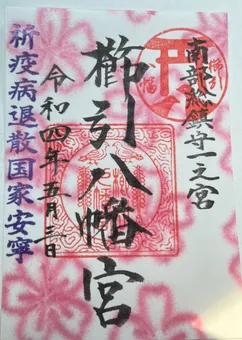 南部総鎮守一之宮
櫛引八幡宮
令和四年五月三日
祈疫病退散国家安寧